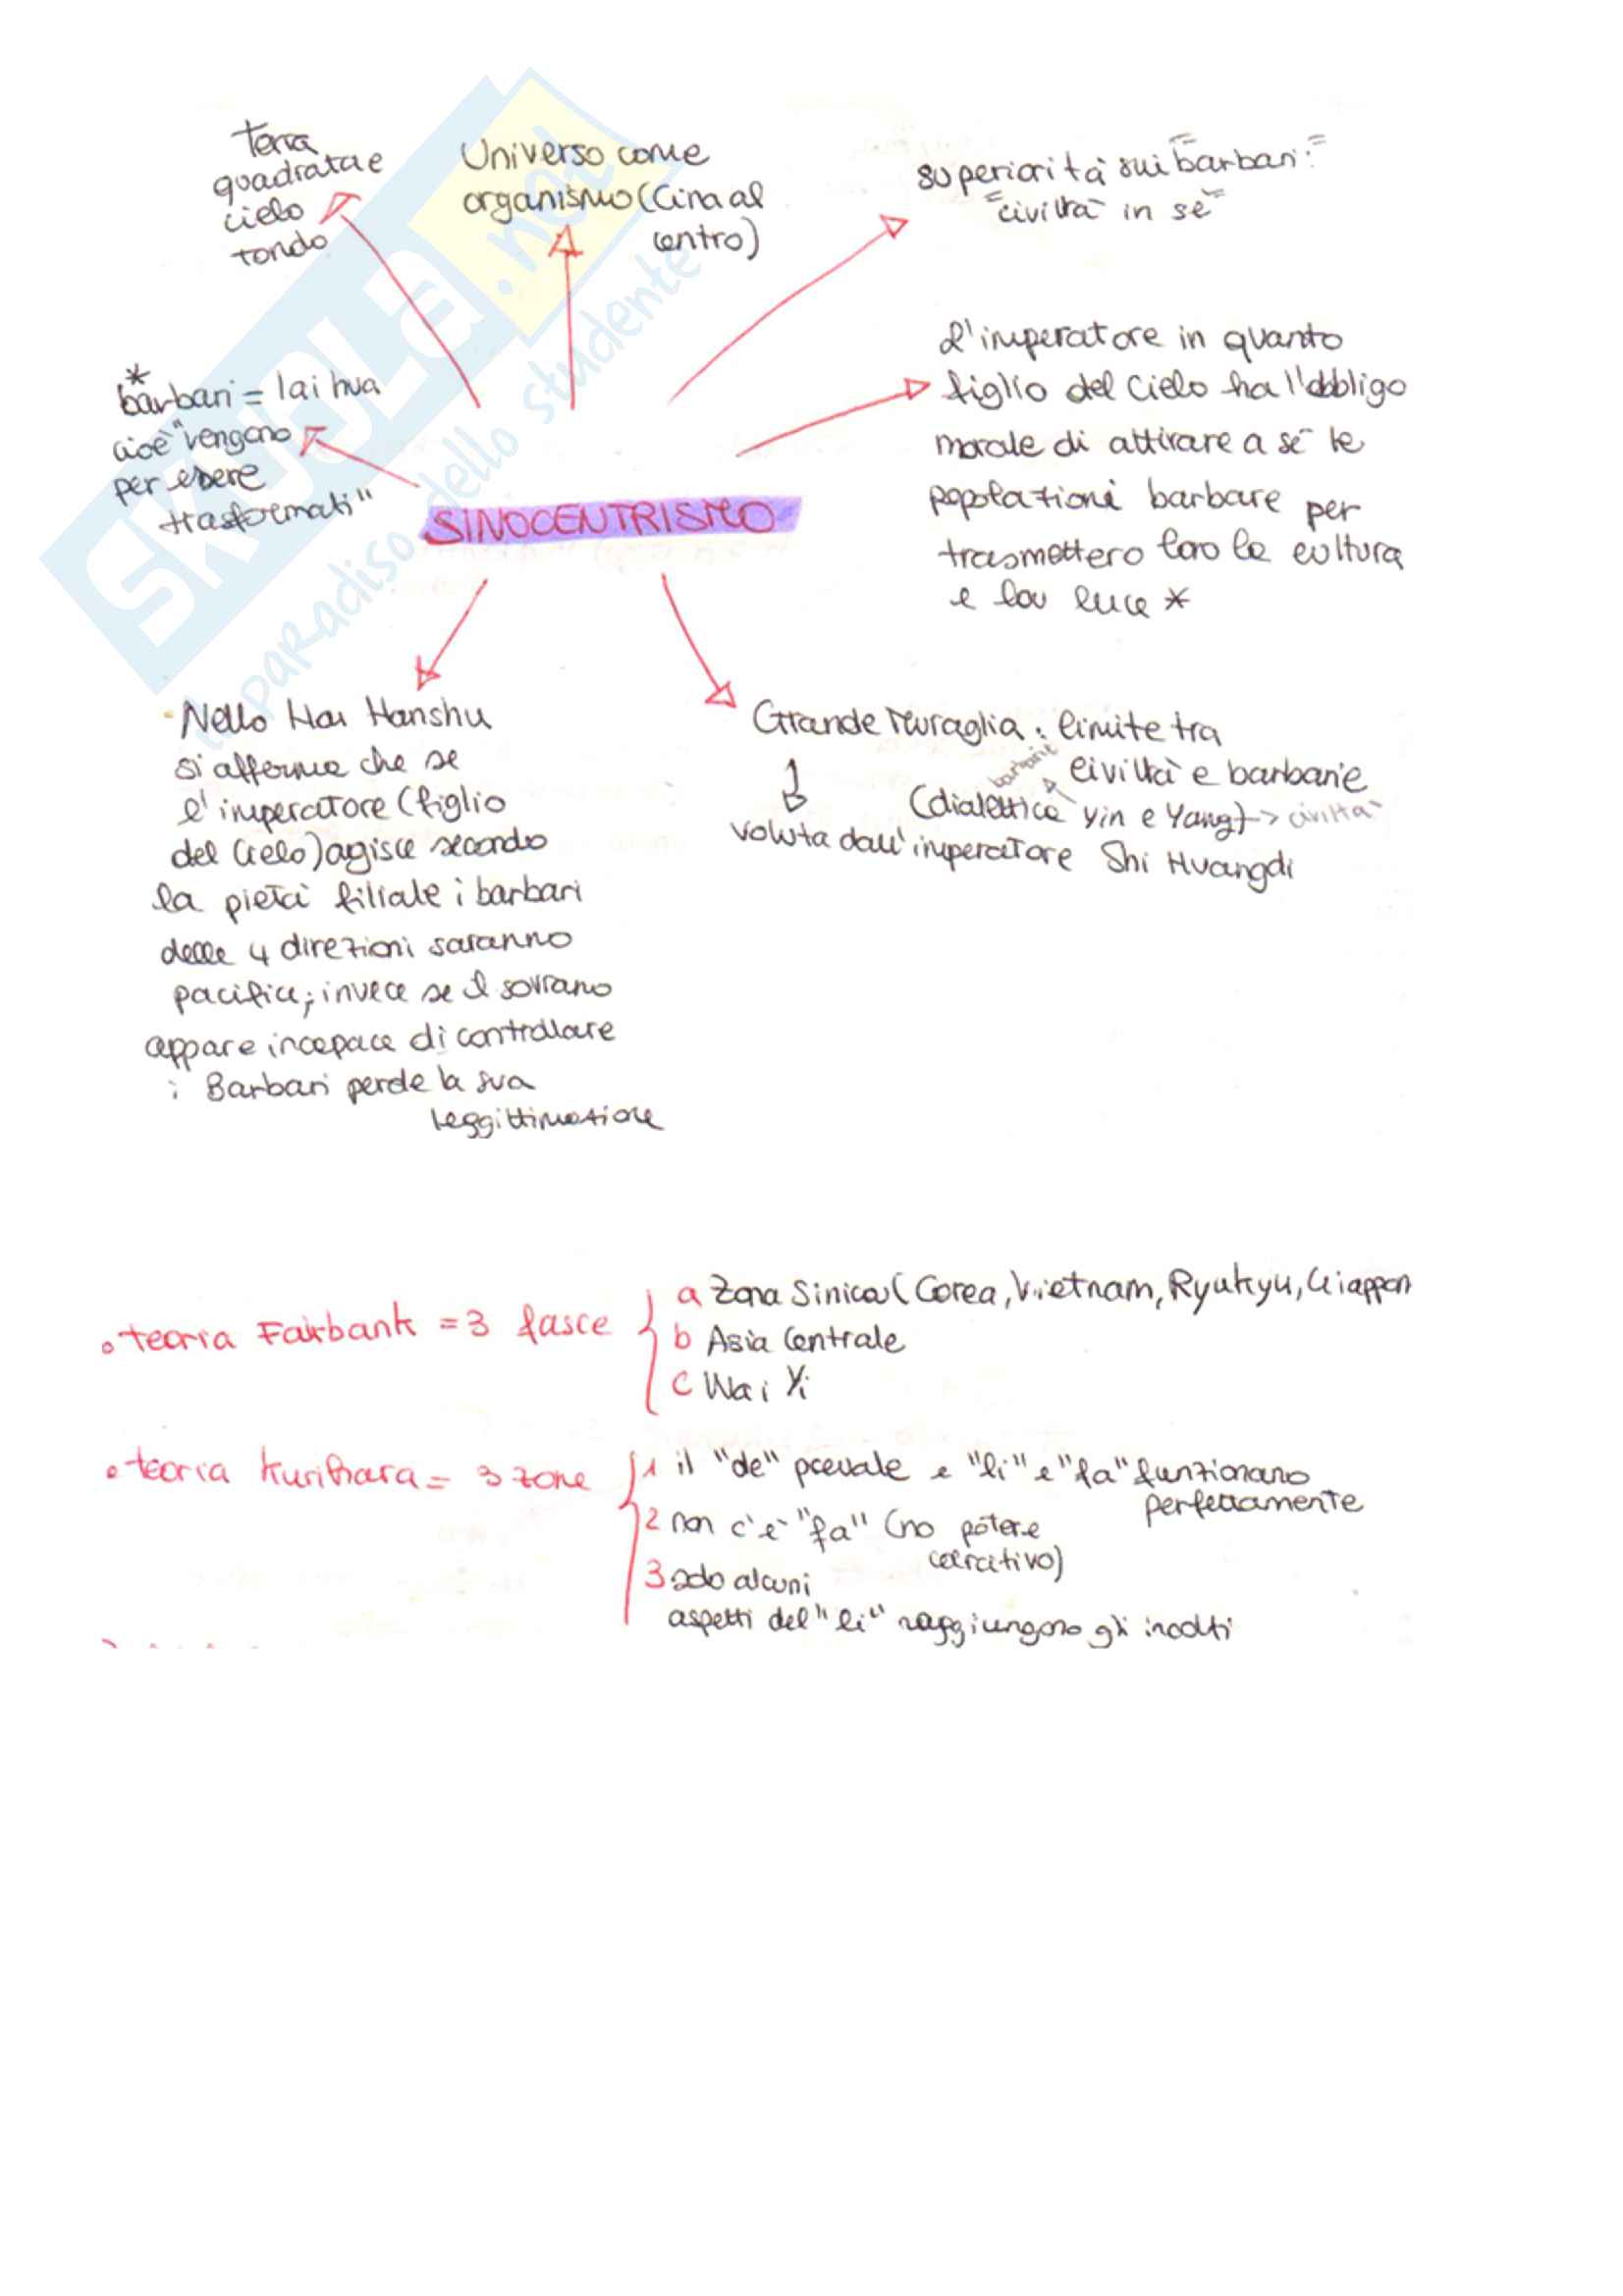 Terra
quadrata e
cielo
tondo
Universo come
organismo (Cina al
centro)
superiorità sui "barbari:"
"civiltà in sé"
L'imperatore in quanto
figlio del Cielo ha l'obbligo
morale di attirare a sé le
popolazioni barbare per
trasmettero loro la cultura
e la luce *
*
barbari = lai hua
cioè "vengono
per essere
trasformati"
SINOCENTRISMO
Nello Hou Hanshu
si afferma che se
l'imperatore (figlio
del Cielo) agisce secondo
la pietà filiale i barbari
delle 4 direzioni saranno
pacifici; invece se il sovrano
appare incapace di controllare
i Barbari perde la sua
leggittimazione
Grande Muraglia: limite tra
civiltà e barbarie
barbarie
(dialettica Yin e Yang) -> civiltà
voluta dall'imperatore Shi Huangdi
• teoria Fairbank = 3 fasce
a Zona Sinica (Corea, Vietnam, Ryukyu, Giappon
b Asia Centrale
c Wai Yi
• teoria Kurihara = 3 zone
1 il "de" prevale e "li" e "fa" funzionano
perfettamente
2 non c'è "fa" (no potere
coercitivo)
3 solo alcuni
aspetti del "li" raggiungono gli incolti
SKUOLA.net
il paradiso dello studente